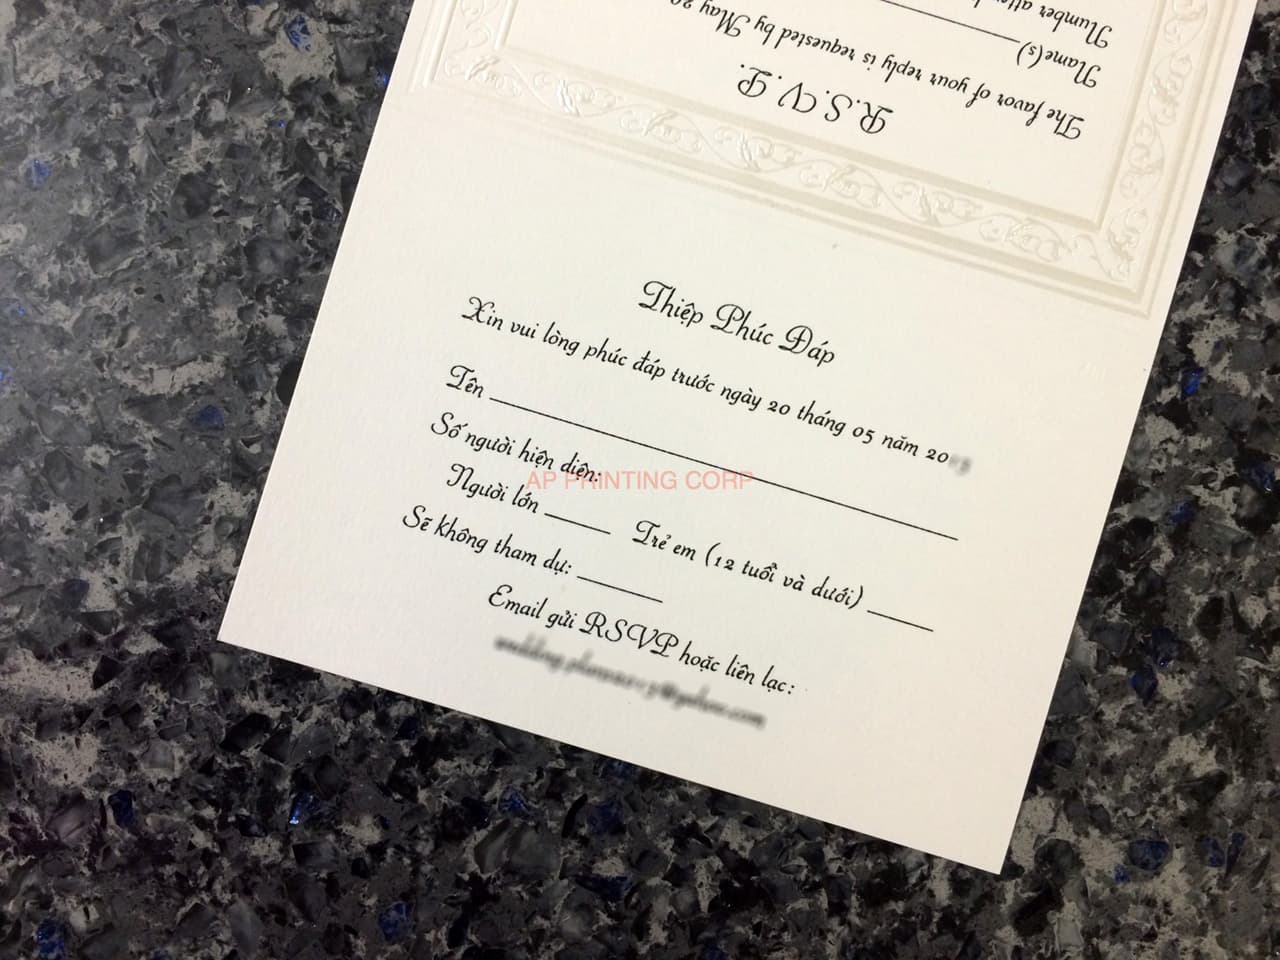 Number atten
Name(s)
The favor of your reply is requested by May 20
R.S.V.P.
Thiệp Phúc Đáp
Xin vui lòng phúc đáp trước ngày 20 tháng 05 năm 20
Tên
Số người hiện diện:
AP PRINTING CORP
Người lớn ____ Trẻ em (12 tuổi và dưới) ____
Sẽ không tham dự: ____
Email gửi RSVP hoặc liên lạc: